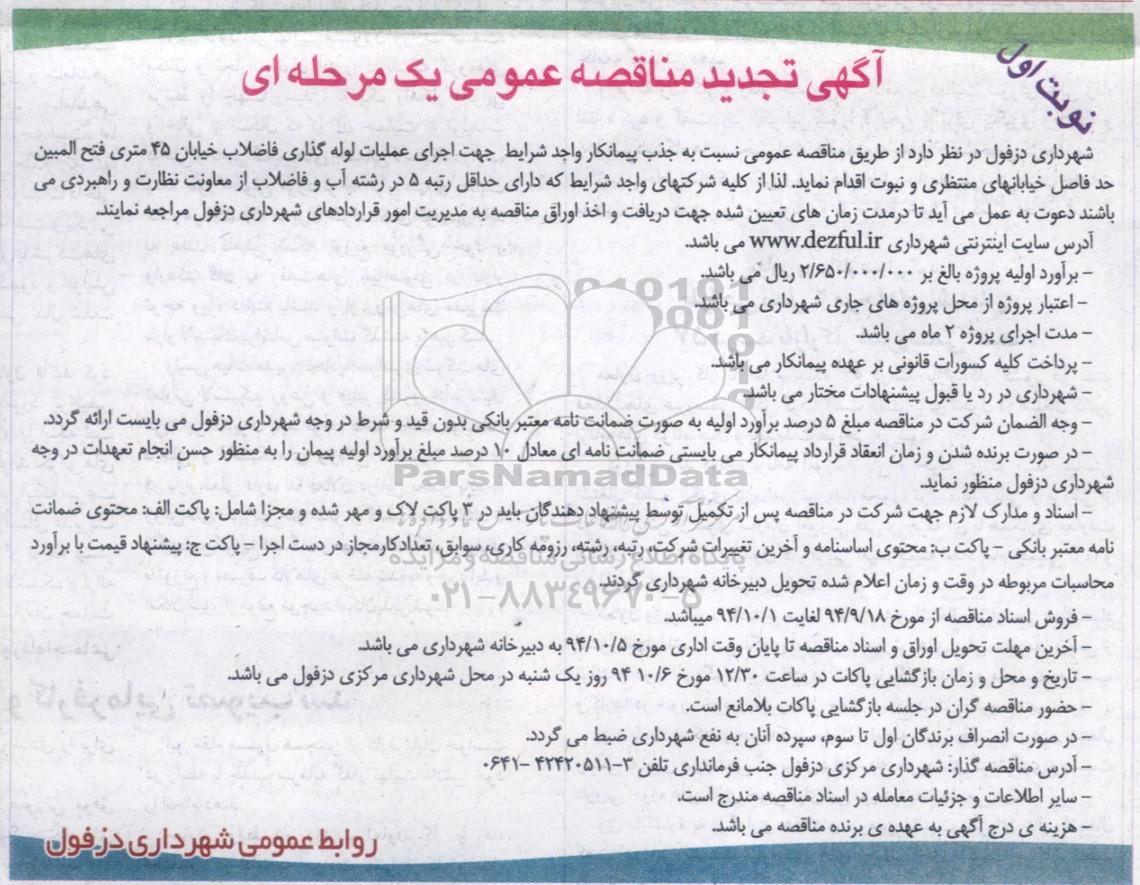 نوبت اول
آگهی تجدید مناقصه عمومی یک مرحله ای
شهرداری دزفول در نظر دارد از طریق مناقصه عمومی نسبت به جذب پیمانکار واجد شرایط جهت اجرای عملیات لوله گذاری فاضلاب خیابان ۴۵ متری فتح المبین
حد فاصل خیابانهای منتظری و نبوت اقدام نماید. لذا از کلیه شرکتهای واجد شرایط که دارای حداقل رتبه ۵ در رشته آب و فاضلاب از معاونت نظارت و راهبردی می
باشند دعوت به عمل می آید تا درمدت زمان های تعیین شده جهت دریافت و اخذ اوراق مناقصه به مدیریت امور قراردادهای شهرداری دزفول مراجعه نمایند.
آدرس سایت اینترنتی شهرداری www.dezful.ir می باشد.
- برآورد اولیه پروژه بالغ بر ۲/۶۵۰/۰۰۰/۰۰۰ ریال می باشد.
- اعتبار پروژه از محل پروژه های جاری شهرداری می باشد.
- مدت اجرای پروژه ۲ ماه می باشد
- پرداخت کلیه کسورات قانونی بر عهده پیمانکار می باشد.
- شهرداری در رد یا قبول پیشنهادات مختار می باشد.
- وجه الضمان شرکت در مناقصه مبلغ ۵ درصد برآورد اولیه به صورت ضمانت نامه معتبر بانکی بدون قید و شرط در وجه شهرداری دزفول می بایست ارائه گردد.
- در صورت برنده شدن و زمان انعقاد قرارداد پیمانکار می بایستی ضمانت نامه ای معادل ۱۰ درصد مبلغ برآورد اولیه پیمان را به منظور حسن انجام تعهدات در وجه
شهرداری دزفول منظور نماید.
- اسناد و مدارک لازم جهت شرکت در مناقصه پس از تکمیل توسط پیشنهاد دهندگان باید در ۳ پاکت لاک و مهر شده و مجزا شامل: پاکت الف: محتوی ضمانت
نامه معتبر بانکی - پاکت ب: محتوی اساسنامه و آخرین تغییرات شرکت، رتبه، رشته، رزومه کاری، سوابق، تعدادکارمجاز در دست اجرا - پاکت ج: پیشنهاد قیمت با برآورد
محاسبات مربوطه در وقت و زمان اعلام شده تحویل دبیرخانه شهرداری گردند.
- فروش اسناد مناقصه از مورخ ۹۴/۹/۱۸ لغایت ۹۴/۱۰/۱ میباشد.
- آخرین مهلت تحویل اوراق و اسناد مناقصه تا پایان وقت اداری مورخ ۹۴/۱۰/۵ به دبیرخانه شهرداری می باشد.
- تاریخ و محل و زمان بازگشایی پاکات در ساعت ۱۲/۳۰ مورخ ۱۰/۶ ۹۴ روز یک شنبه در محل شهرداری مرکزی دزفول می باشد.
- حضور مناقصه گران در جلسه بازگشایی پاکات بلامانع است.
- در صورت انصراف برندگان اول تا سوم، سپرده آنان به نفع شهرداری ضبط می گردد.
- آدرس مناقصه گذار: شهرداری مرکزی دزفول جنب فرمانداری تلفن ۳-۴۲۴۲۰۵۱۱ -۰۶۴۱
- سایر اطلاعات و جزئیات معامله در اسناد مناقصه مندرج است.
- هزینه ی درج آگهی به عهده ی برنده مناقصه می باشد.
روابط عمومی شهرداری دزفول
ParsNamadData
پایگاه اطلاع رسانی مناقصه و مزایده
۰۲۱-۸۸۳۴۹۶۷۰-۵